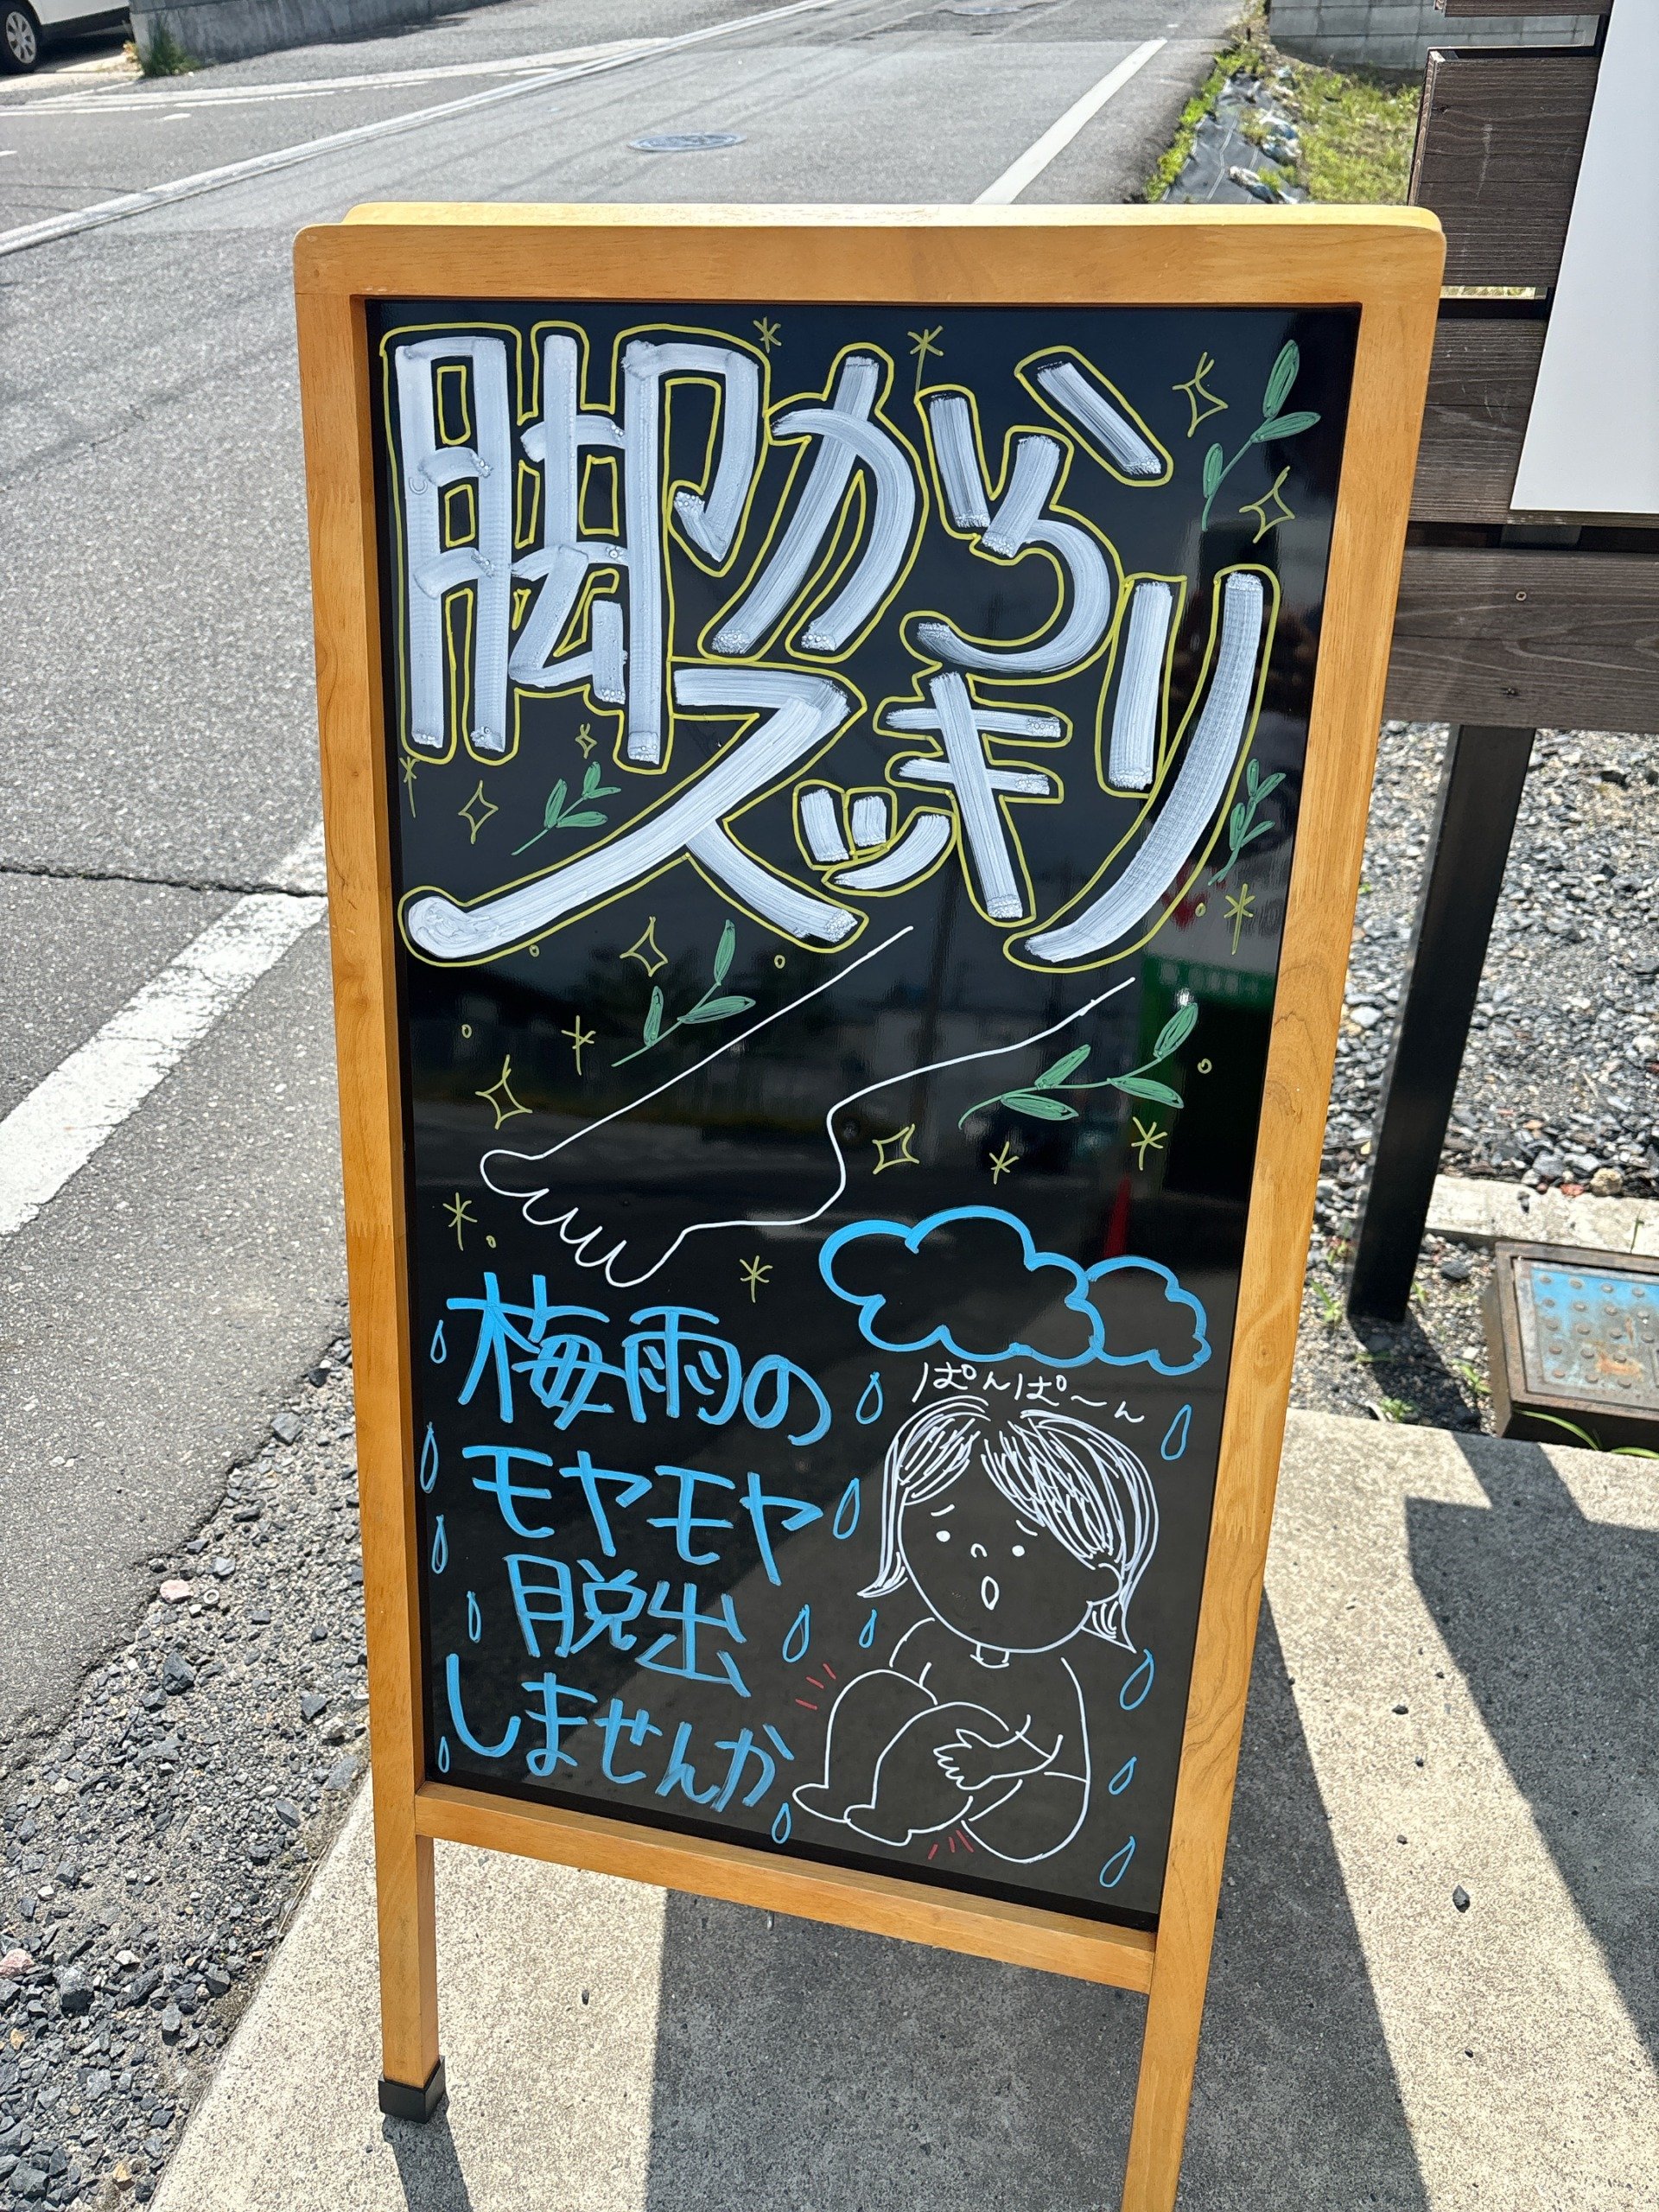 脚から
スッキリ
梅雨の
ぱんぱ〜ん
モヤモヤ
脱出
しませんか